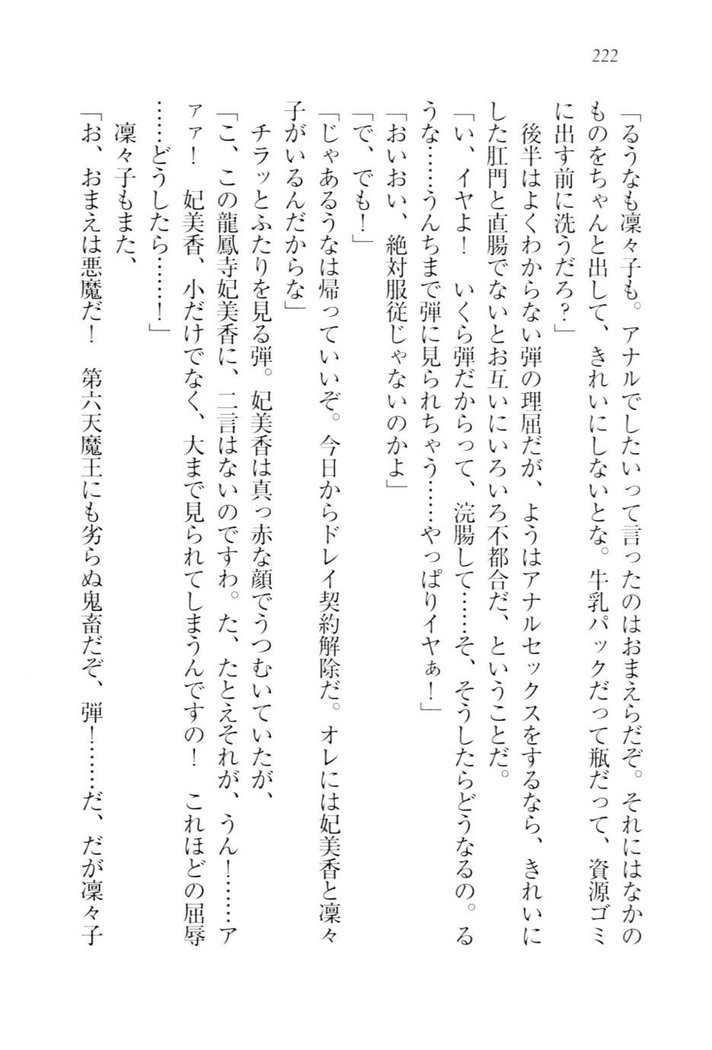 222
「るうなも凛々子も。アナルでしたいって言ったのはおまえらだぞ。それにはなかの
ものをちゃんと出して、きれいにしないとな。牛乳パックだって瓶だって、資源ゴミ
に出す前に洗うだろ？」
後半はよくわからない弾の理屈だが、ようはアナルセックスをするなら、きれいに
した肛門と直腸でないとお互いにいろいろ不都合だ、ということだ。
「い、イヤよ！　いくら弾だからって、浣腸して……そ、そうしたらどうなるの。る
うな……うんちまで弾に見られちゃう……やっぱりイヤぁ！」
「おいおい、絶対服従じゃないのかよ」
「で、でも！」
「じゃあるうなは帰っていいぞ。今日からドレイ契約解除だ。オレには妃美香と凛々
子がいるんだからな」
チラッとふたりを見る弾。妃美香は真っ赤な顔でうつむいていたが、
「こ、この龍鳳寺妃美香に、二言はないのですわ。た、たとえそれが、うん！……ア
ァァ！　妃美香、小だけでなく、大まで見られてしまうんですの！　これほどの屈辱
……どうしたら……！」
凛々子もまた、
「お、おまえは悪魔だ！　第六天魔王にも劣らぬ鬼畜だぞ、弾！……だ、だが凛々子